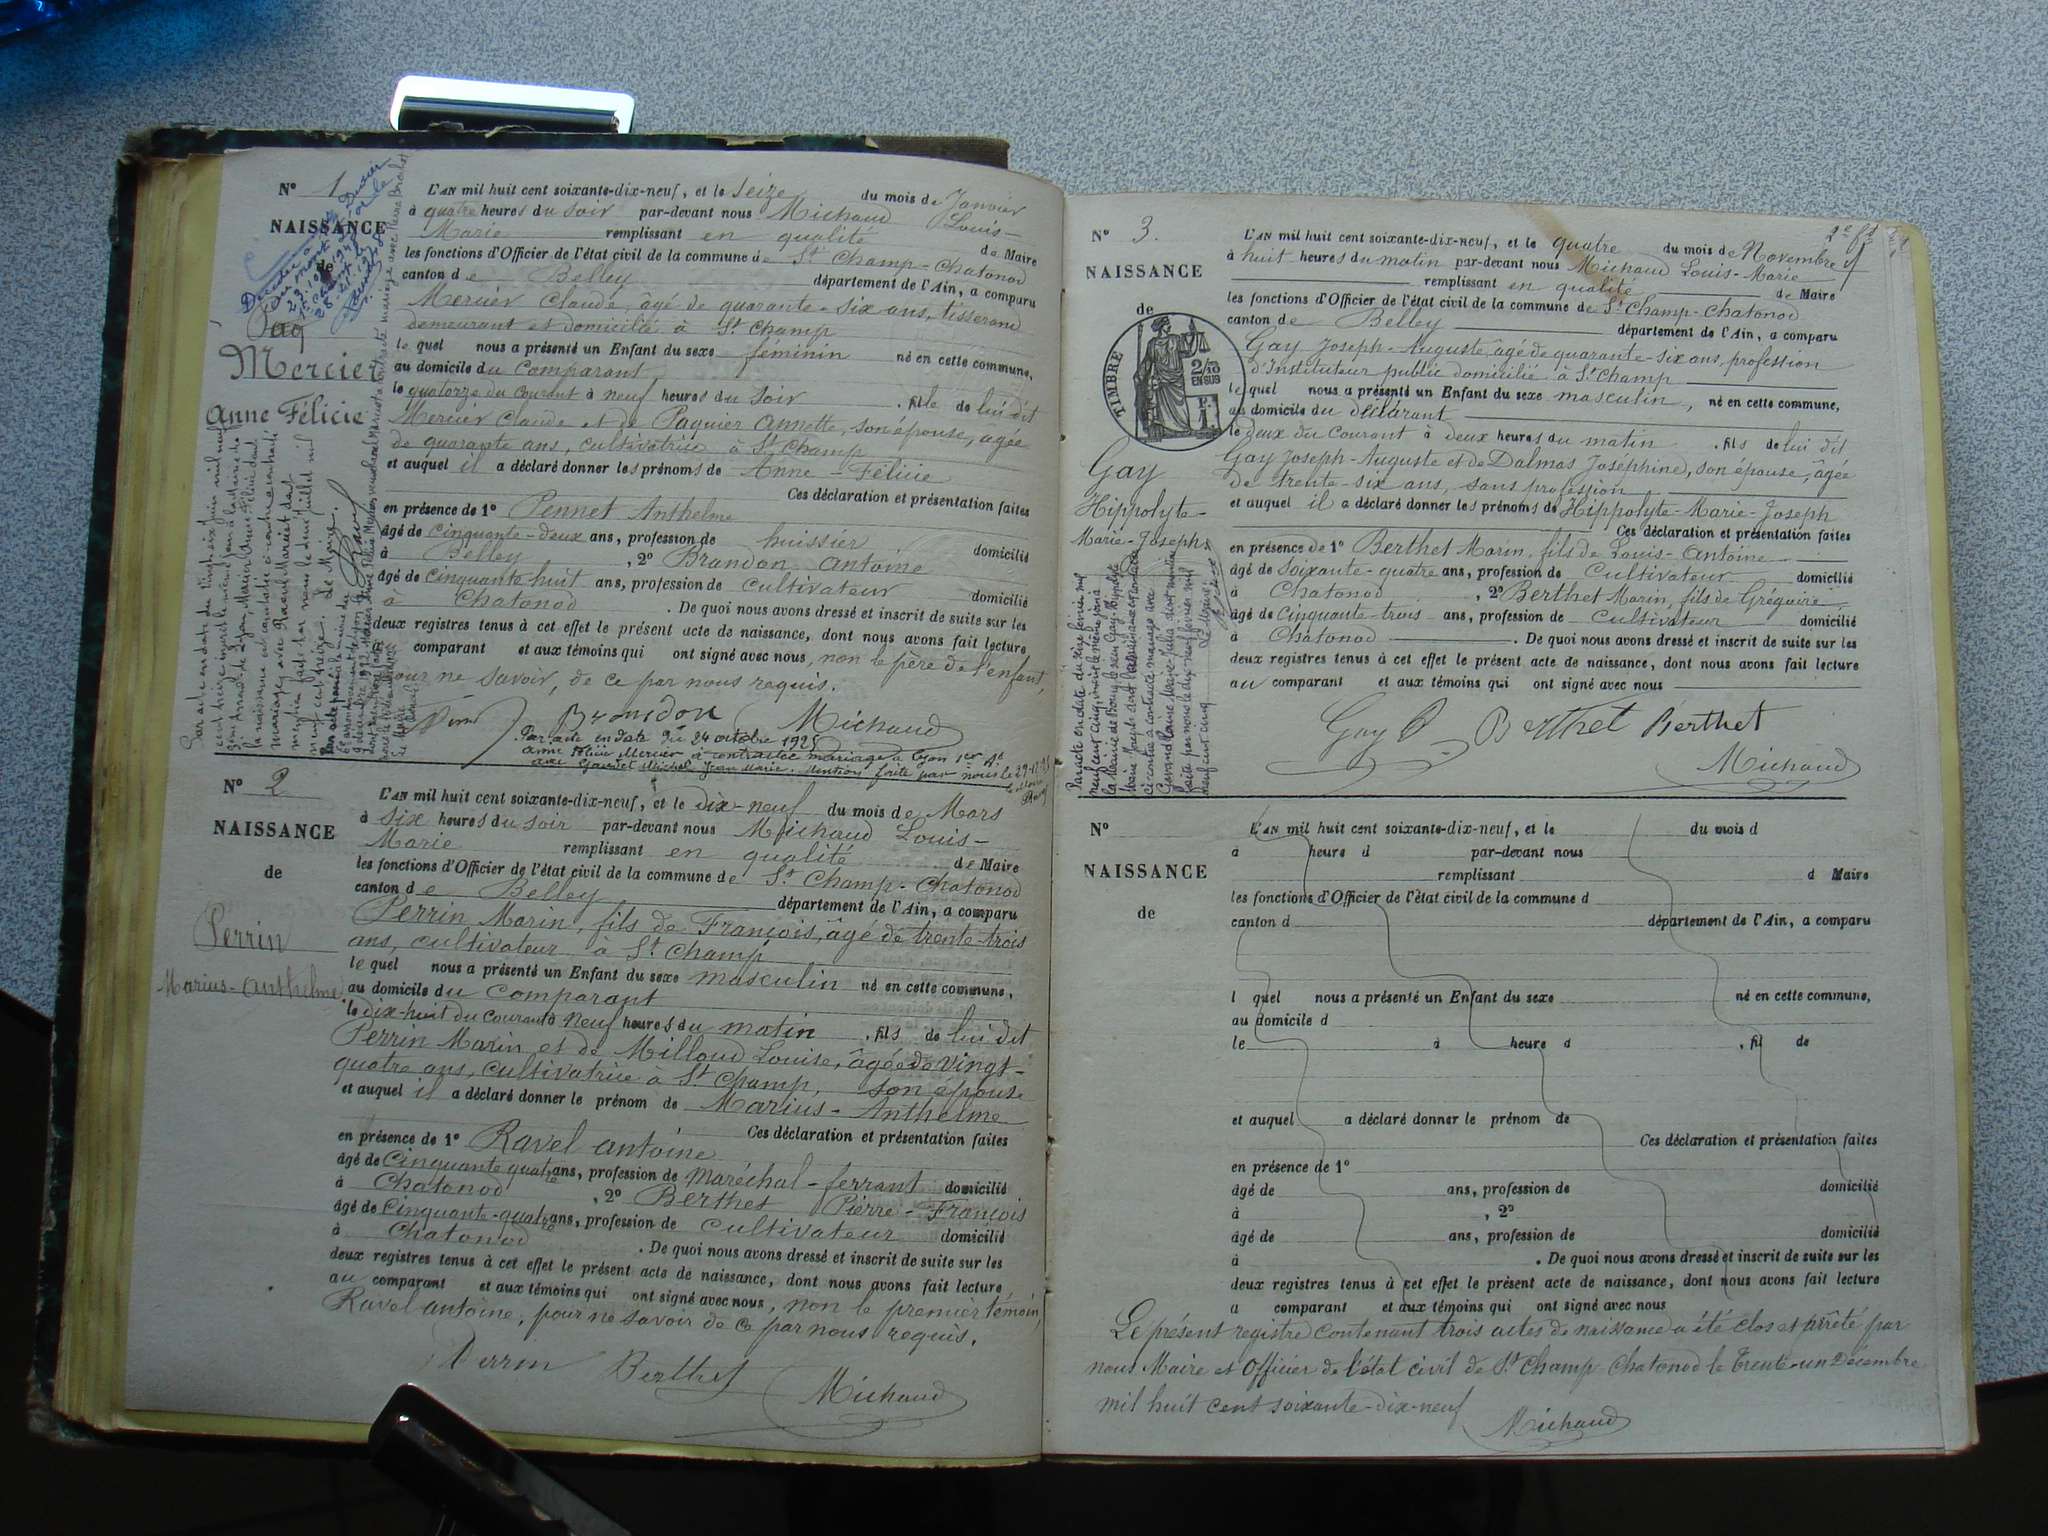 N° 1
NAISSANCE
de
Mercier
Anne Félicie
L'AN mil huit cent soixante-dix-neuf, et le seize du mois de Janvier
à quatre heures du soir par-devant nous Michaud Louis-
Marie remplissant en qualité de Maire
les fonctions d'Officier de l'état civil de la commune de St Champ-Chatonod
canton de Belley département de l'Ain, a comparu
Mercier Claude, âgé de quarante-six ans, tisserand
demeurant et domicilié à St Champ
lequel nous a présenté un Enfant du sexe féminin né en cette commune,
au domicile du comparant
le quatorze du courant à neuf heures du soir , fille de lui dit
Mercier Claude et de Paquier Annette, son épouse, âgée
de quarante ans, cultivatrice à St Champ
et auquel il a déclaré donner les prénoms de Anne-Félicie
Ces déclaration et présentation faites
en présence de 1° Pennet Anthelme
âgé de cinquante-deux ans, profession de huissier domicilié
à Belley , 2° Brandon Antoine
âgé de cinquante huit ans, profession de cultivateur domicilié
à Chatonod . De quoi nous avons dressé et inscrit de suite sur les
deux registres tenus à cet effet le présent acte de naissance, dont nous avons fait lecture
comparant et aux témoins qui ont signé avec nous, non le père de l'enfant,
pour ne savoir, de ce par nous requis.
Brandon Michaud
Par acte en date du 24 octobre 1925
Anne Félicie Mercier a contracté mariage à Lyon 1er Ardt
avec Gaudet Michel Jean Marie. Mention faite par nous le
N° 2
NAISSANCE
de
Perrin
Marius-Anthelme
L'AN mil huit cent soixante-dix-neuf, et le dix-neuf du mois de Mars
à six heures du soir par-devant nous Michaud Louis-
Marie remplissant en qualité de Maire
les fonctions d'Officier de l'état civil de la commune de St Champ-Chatonod
canton de Belley département de l'Ain, a comparu
Perrin Marin, fils de François, âgé de trente-trois
ans, cultivateur à St Champ
lequel nous a présenté un Enfant du sexe masculin né en cette commune,
au domicile du comparant
le dix-huit du courant à neuf heures du matin , fils de lui dit
Perrin Marin et de Milloud Louise, âgée de vingt-
quatre ans, cultivatrice à St Champ, son épouse
et auquel il a déclaré donner le prénom de Marius-Anthelme
Ces déclaration et présentation faites
en présence de 1° Ravel antoine
âgé de Cinquante quatre ans, profession de Maréchal-ferrant domicilié
à Chatonod , 2° Berthet Pierre-François
âgé de Cinquante-quatre ans, profession de cultivateur domicilié
à Chatonod . De quoi nous avons dressé et inscrit de suite sur les
deux registres tenus à cet effet le présent acte de naissance, dont nous avons fait lecture
au comparant et aux témoins qui ont signé avec nous, non le premier témoin,
Ravel antoine, pour ne savoir de ce par nous requis.
Perrin Berthet Michaud
N° 3.
NAISSANCE
de
TIMBRE
2/10
EN SUS
Gay
Hippolyte-
Marie-Joseph
L'AN mil huit cent soixante-dix-neuf, et le quatre du mois de Novembre
à huit heures du matin par-devant nous Michaud Louis-Marie
remplissant en qualité de Maire
les fonctions d'Officier de l'état civil de la commune de St Champ-Chatonod
canton de Belley département de l'Ain, a comparu
Gay Joseph-Auguste âgé de quarante-six ans, profession
d'Instituteur public domicilié à St Champ
lequel nous a présenté un Enfant du sexe masculin, né en cette commune,
au domicile du déclarant
le deux du courant à deux heures du matin , fils de lui dit
Gay Joseph-Auguste et de Dalmas Joséphine, son épouse, âgée
de trente-six ans, sans profession
et auquel il a déclaré donner les prénoms de Hippolyte-Marie-Joseph
Ces déclaration et présentation faites
en présence de 1° Berthet Marin, fils de Louis-Antoine
âgé de soixante-quatre ans, profession de Cultivateur domicilié
à Chatonod , 2° Berthet Marin, fils de Grégoire
âgé de Cinquante-trois ans, profession de cultivateur domicilié
à Chatonod . De quoi nous avons dressé et inscrit de suite sur les
deux registres tenus à cet effet le présent acte de naissance, dont nous avons fait lecture
au comparant et aux témoins qui ont signé avec nous
Gay Berthet Berthet
Michaud
N°
NAISSANCE
de
L'AN mil huit cent soixante-dix-neuf, et le du mois d
à heure d par-devant nous
remplissant d Maire
les fonctions d'Officier de l'état civil de la commune d
canton d département de l'Ain, a comparu
l quel nous a présenté un Enfant du sexe né en cette commune,
au domicile d
le à heure d , fil de
et auquel a déclaré donner le prénom de
Ces déclaration et présentation faites
en présence de 1°
âgé de ans, profession de domicilié
à , 2°
âgé de ans, profession de domicilié
à . De quoi nous avons dressé et inscrit de suite sur les
deux registres tenus à cet effet le présent acte de naissance, dont nous avons fait lecture
a comparant et aux témoins qui ont signé avec nous
Le présent registre contenant trois actes de naissance a été clos et arrêté par
nous Maire et Officier de l'état civil de St Champ Chatonod le trente-un Décembre
mil huit cent soixante-dix-neuf
Michaud